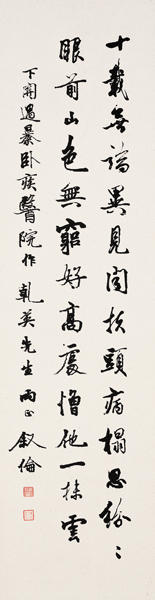 十載無端異見聞扶頭病榻思紛〻
眼前山色無窮好高處憎他一抹雲
下關遇暴卧疾醫院作 乾英先生兩正 叙倫